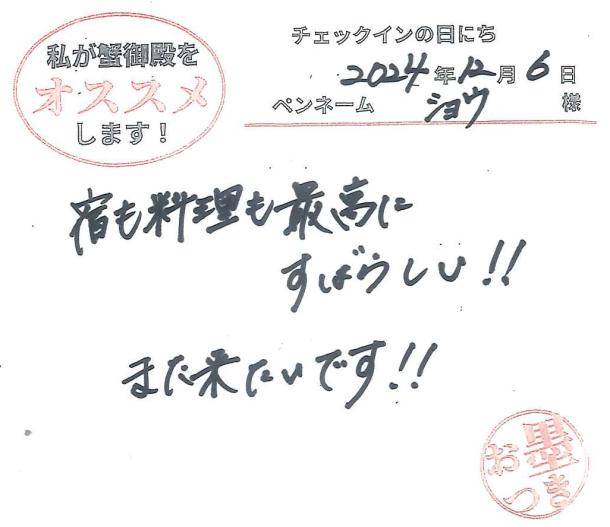 私が蟹御殿を
オススメ
します！
チェックインの日にち
2024年12月6日
ペンネーム ショウ 様
宿も料理も最高に
すばらしい!!
また来たいです!!
お墨
つき